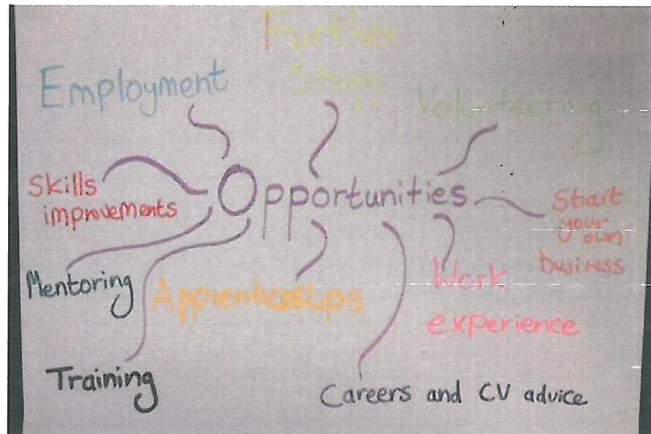 Further
Study
Employment
Volunteering
Skills
improvements
Opportunities
Start
your own
business
Mentoring
Apprenticeships
Work
experience
Training
Careers and CV advice